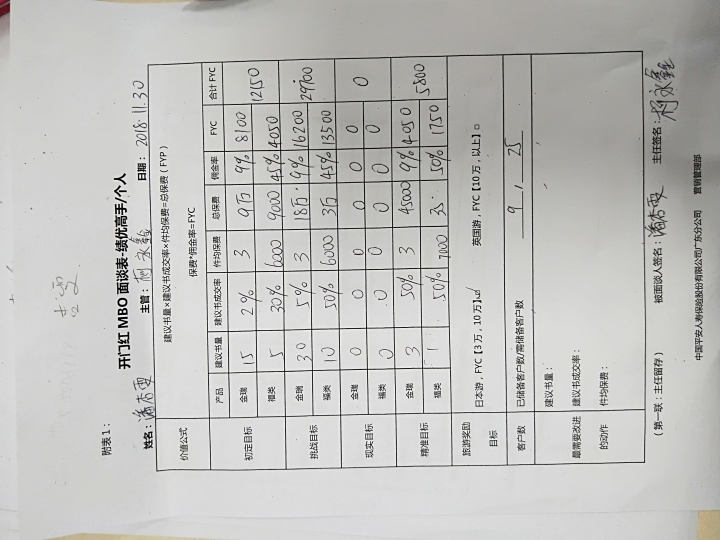 附表1：
开门红 MBO 面谈表-绩优高手/个人
姓名： 主管： 日期： 2018.11.30
价值公式 建议书量×建议书成交率×件均保费=总保费（FYP）
保费*佣金率=FYC
产品 建议书量 建议书成交率 件均保费 总保费 佣金率 FYC 合计 FYC
初定目标 金瑞 15 2% 3 9万 9% 8100 12150
福类 5 30% 6000 9000 45% 4050
挑战目标 金瑞 30 5% 3 18万 9% 16200 29700
福类 10 50% 6000 3万 45% 13500
现实目标 金瑞 0 0 0 0 0 0 0
福类 0 0 0 0 0 0
精准目标 金瑞 3 50% 3 45000 9% 4050 5800
福类 1 50% 7000 50% 1750
旅游奖励目标 日本游，FYC【3万，10万】☑ 英国游，FYC【10万，以上】□
客户数 已储备客户数/需储备客户数 9 , 25
最需要改进的动作 建议书量：
建议书成交率：
件均保费：
（第一联：主任留存） 被面谈人签名： 主任签名：
中国平安人寿保险股份有限公司广东分公司 营销管理部